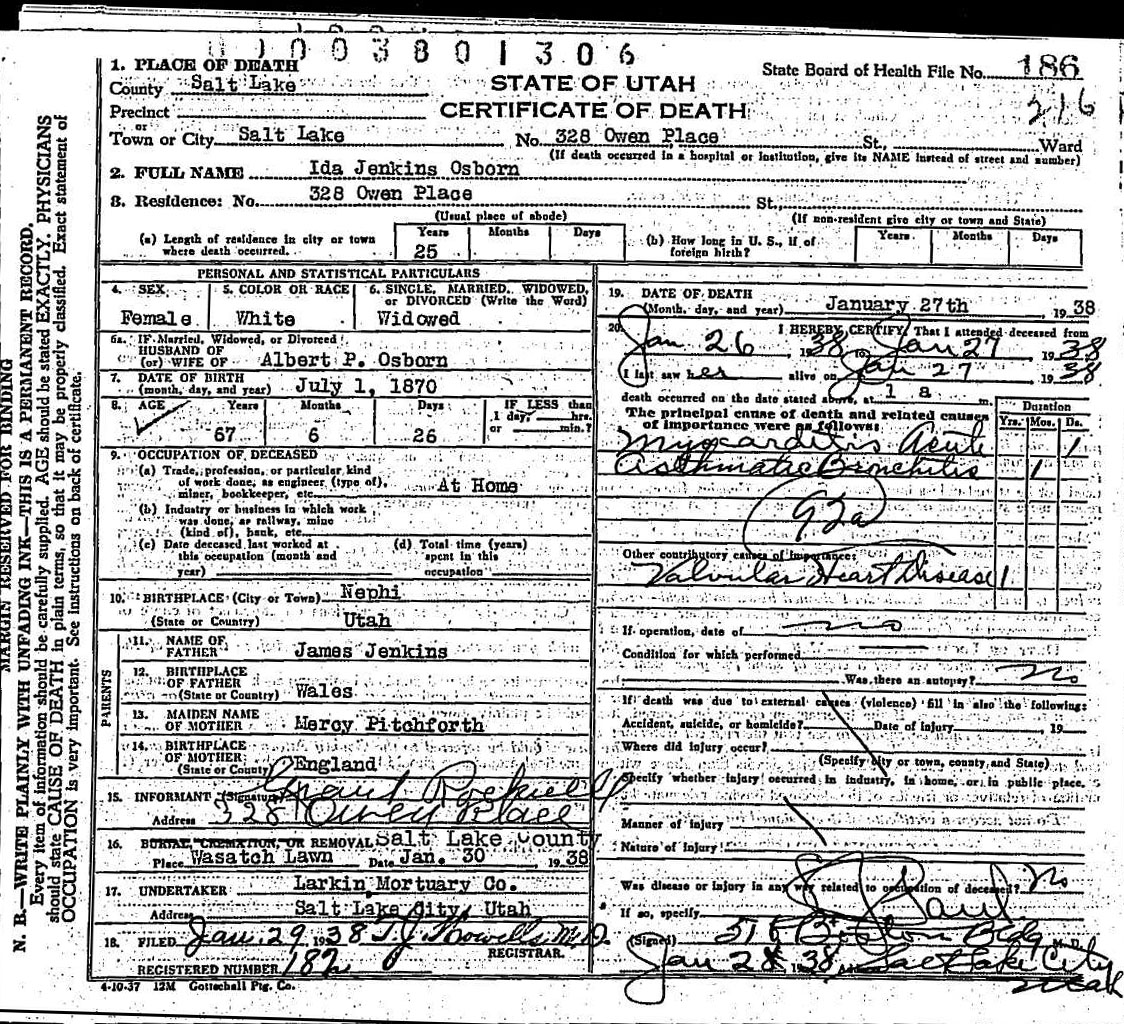 0 1 0 0 3 8 0 1 3 0 6
1. PLACE OF DEATH
County Salt Lake
STATE OF UTAH
CERTIFICATE OF DEATH
State Board of Health File No. 186
216
Precinct
or
Town or City Salt Lake No. 328 Owen Place St., Ward
(If death occurred in a hospital or institution, give its NAME instead of street and number)
2. FULL NAME Ida Jenkins Osborn
3. Residence: No. 328 Owen Place St.,
(Usual place of abode) (If non-resident give city or town and State)
(a) Length of residence in city or town where death occurred. Years 25 Months Days
(b) How long in U. S., if of foreign birth? Years Months Days
PERSONAL AND STATISTICAL PARTICULARS
4. SEX Female
5. COLOR OR RACE White
6. SINGLE, MARRIED, WIDOWED, or DIVORCED (Write the Word) Widowed
6a. IF Married, Widowed, or Divorced
HUSBAND OF
(or) WIFE OF Albert P. Osborn
7. DATE OF BIRTH
(month, day, and year) July 1, 1870
8. AGE Years 67 Months 6 Days 26
IF LESS than
1 day, hrs.
or min.?
9. OCCUPATION OF DECEASED
(a) Trade, profession, or particular kind
of work done, as engineer (type of),
miner, bookkeeper, etc. At Home
(b) Industry or business in which work
was done, as railway, mine
(kind of), bank, etc.
(c) Date deceased last worked at
this occupation (month and
year)
(d) Total time (years)
spent in this
occupation
10. BIRTHPLACE (City or Town) Nephi
(State or Country) Utah
PARENTS
11. NAME OF
FATHER James Jenkins
12. BIRTHPLACE
OF FATHER
(State or Country) Wales
13. MAIDEN NAME
OF MOTHER Mercy Pitchforth
14. BIRTHPLACE
OF MOTHER
(State or County) England
15. INFORMANT (Signature)
Address 328 Place
16. BURIAL, CREMATION, OR REMOVAL Salt Lake County
Place Wasatch Lawn Date Jan. 30 1938
17. UNDERTAKER Larkin Mortuary Co.
Address Salt Lake City, Utah
18. FILED Jan. 29 1938 T. J. Howells M.D.
REGISTRAR.
REGISTERED NUMBER 182
4-10-37 12M Gottschall Ptg. Co.
19. DATE OF DEATH
(Month, day, and year) January 27th 1938
20. I HEREBY CERTIFY, That I attended deceased from
Jan 26 1938 to Jan 27 1938
I last saw her alive on Jan 27 1938
death occurred on the date stated above, at 1 a m.
The principal cause of death and related causes
of importance were as follows:
Duration
Yrs. Mos. Ds.
Myocarditis Acute 1
Asthmatic Bronchitis 1
92a
Other contributory causes of importance:
Valvular Heart Disease 1
If operation, date of no
Condition for which performed
Was there an autopsy? No
If death was due to external causes (violence) fill in also the following:
Accident, suicide, or homicide? Date of injury 19
Where did injury occur?
(Specify city or town, county and State)
Specify whether injury occurred in industry, in home, or in public place.
Manner of injury
Nature of injury
Was disease or injury in any way related to occupation of deceased? No
If so, specify
(Signed) Paul M. D.
Boston Bldg
Jan 28 1938 Salt Lake City
Utah
MARGIN RESERVED FOR BINDING
N. B.—WRITE PLAINLY WITH UNFADING INK—THIS IS A PERMANENT RECORD.
Every item of information should be carefully supplied. AGE should be stated EXACTLY. PHYSICIANS
should state CAUSE OF DEATH in plain terms, so that it may be properly classified. Exact statement of
OCCUPATION is very important. See instructions on back of certificate.